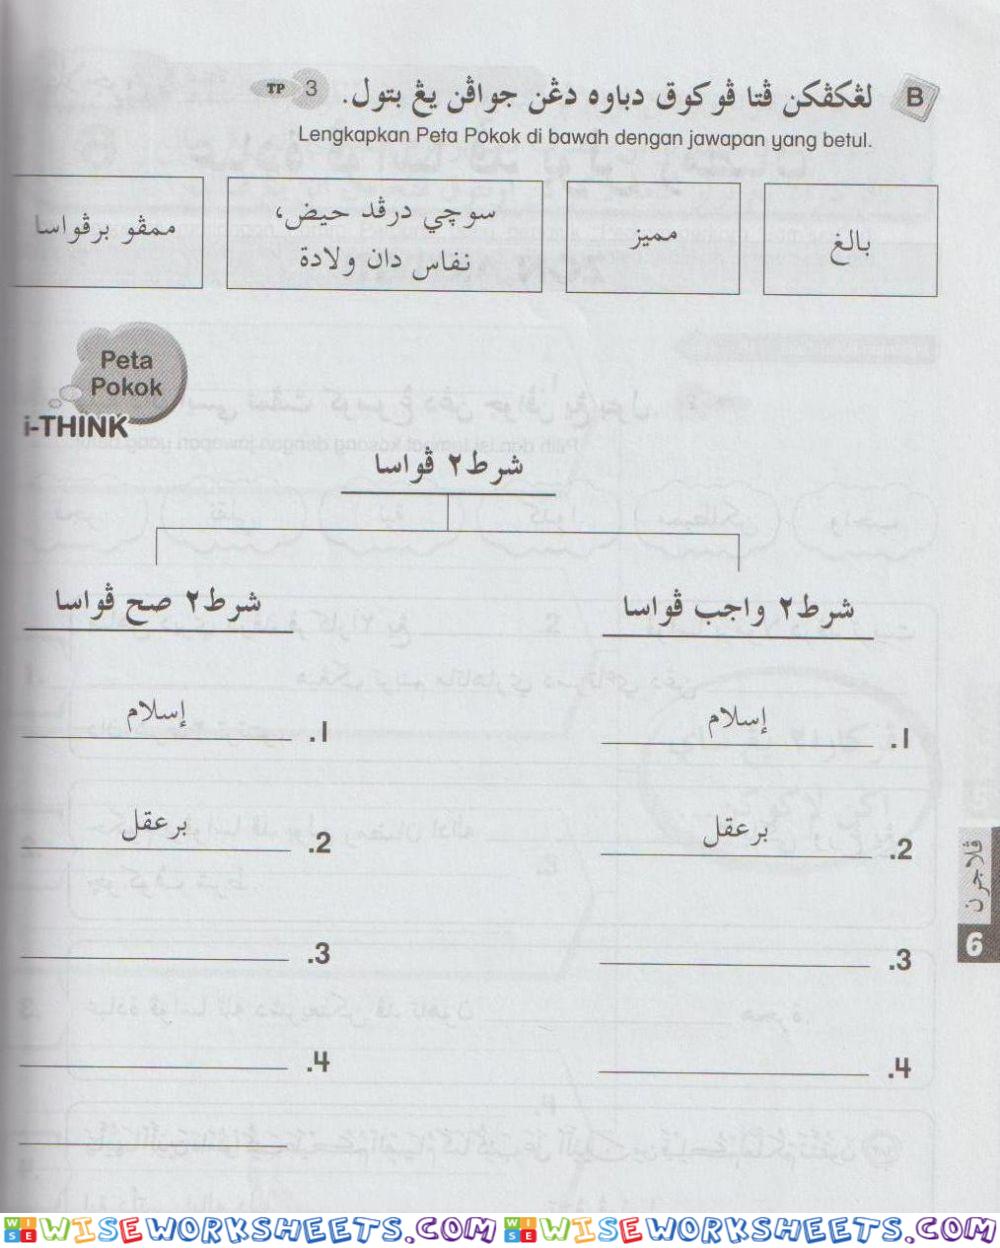 B لڠكڤكن ڤتا ڤوكوق دباوه دڠن جواڤن يڠ بتول. TP 3
Lengkapkan Peta Pokok di bawah dengan jawapan yang betul.
بالغ
مميز
سوچي درڤد حيض،
نفاس دان ولادة
ممڤو برڤواسا
Peta
Pokok
i-THINK
شرط٢ ڤواسا
شرط٢ واجب ڤواسا
شرط٢ صح ڤواسا
.1 إسلام
.1 إسلام
.2 برعقل
.2 برعقل
.3
.3
.4
.4
ڤلاجرن
6
WISEWORKSHEETS.COM WISEWORKSHEETS.COM